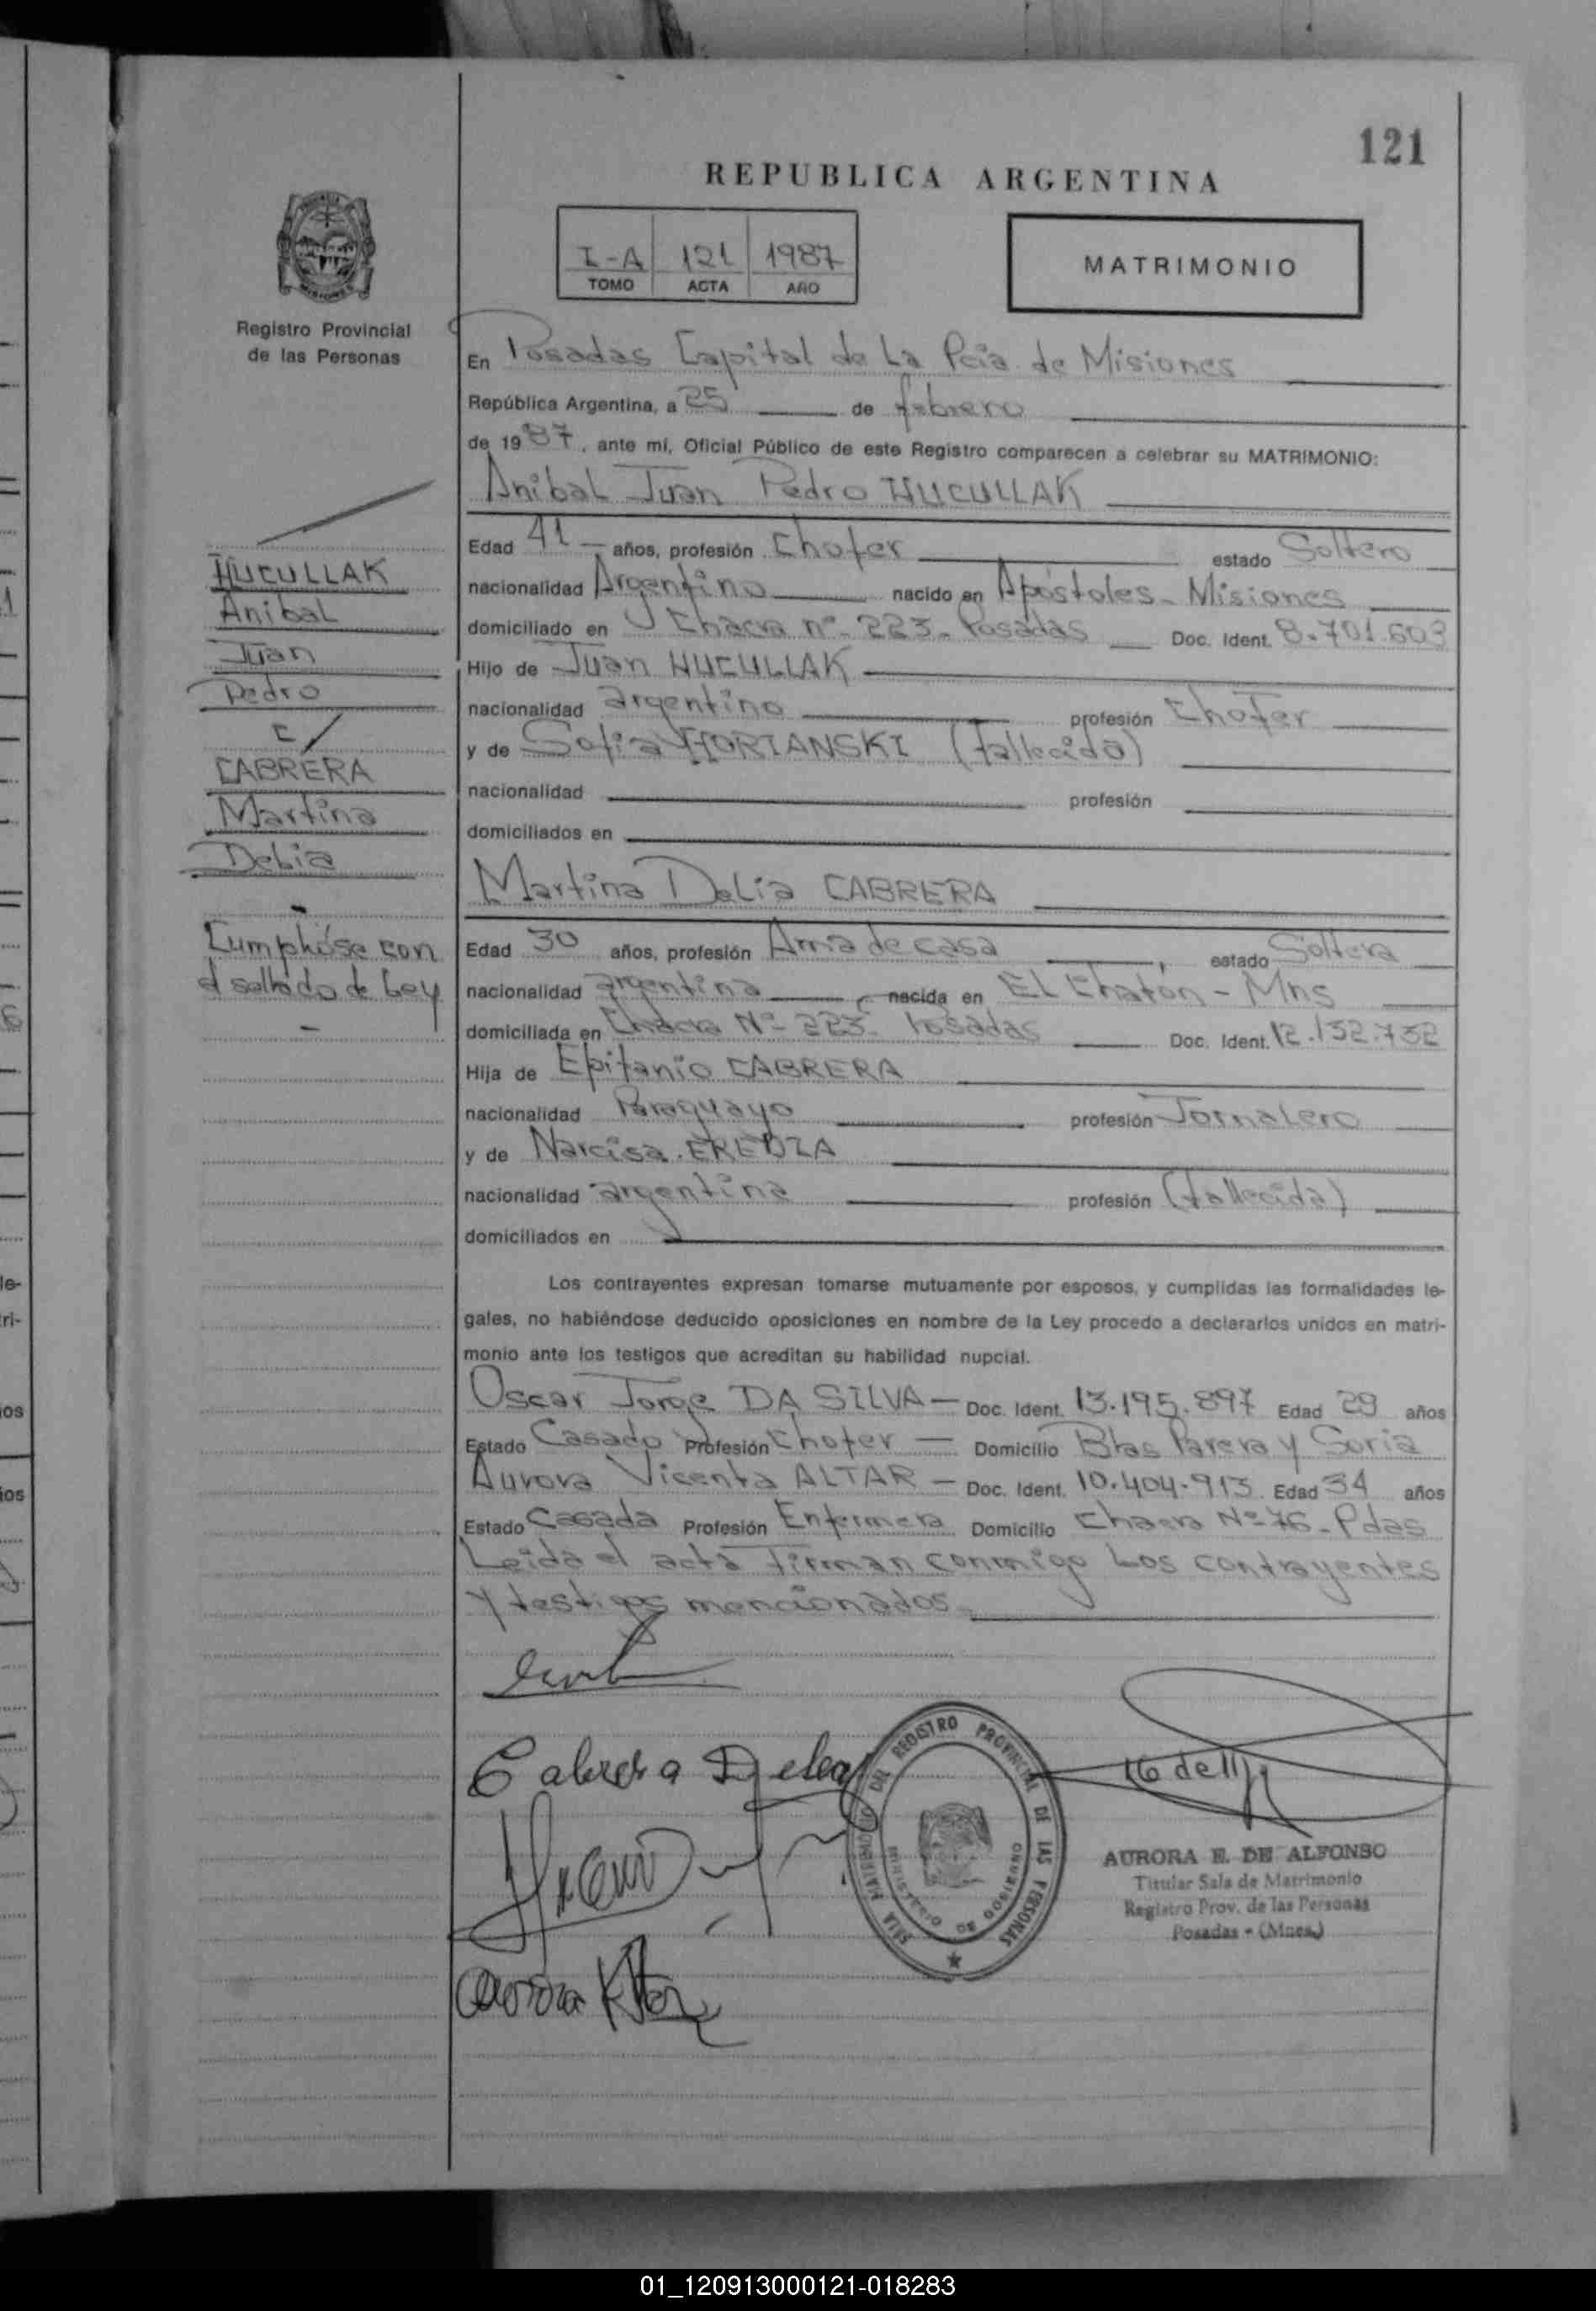 121
REPUBLICA ARGENTINA
I-A 121 1987
TOMO ACTA AÑO
MATRIMONIO
Registro Provincial
de las Personas
En Posadas Capital de La Pcia. de Misiones
República Argentina, a 25 de febrero
de 1987, ante mí, Oficial Público de este Registro comparecen a celebrar su MATRIMONIO:
Anibal Juan Pedro HUCULLAK
Edad 41 años, profesión Chofer estado Soltero
nacionalidad Argentino nacido en Apóstoles - Misiones
domiciliado en Chacra nº 223 - Posadas Doc. Ident. 8.701.603
Hijo de Juan HUCULLAK
nacionalidad argentino profesión Chofer
y de Sofia HORIANSKI (fallecida)
nacionalidad profesión
domiciliados en
Martina Delia CABRERA
Edad 30 años, profesión Ama de casa, estado Soltera
nacionalidad argentina, nacida en El Chatón - Mns
domiciliada en Chacra Nº 223 - Posadas Doc. Ident. 12.132.732
Hija de Epifanio CABRERA
nacionalidad Paraguayo profesión Jornalero
y de Narcisa EREDIA
nacionalidad argentina profesión (fallecida)
domiciliados en
HUCULLAK
Anibal
Juan
Pedro
C/
CABRERA
Martina
Delia
Cumplióse con
el sellado de Ley
Los contrayentes expresan tomarse mutuamente por esposos, y cumplidas las formalidades le-
gales, no habiéndose deducido oposiciones en nombre de la Ley procedo a declararlos unidos en matri-
monio ante los testigos que acreditan su habilidad nupcial.
Oscar Jorge DA SILVA - Doc. Ident. 13.195.897 Edad 29 años
Estado Casado Profesión Chofer - Domicilio Blas Parera y Soria
Aurora Vicenta ALTAR - Doc. Ident. 10.404.913 Edad 34 años
Estado Casada Profesión Enfermera Domicilio Chacra Nº 76 - Pdas
Leida el acta firman conmigo Los contrayentes
y testigos mencionados
Cabrera Delia
SALA MATRIMONIO DEL REGISTRO PROVINCIAL DE LAS PERSONAS
MINISTERIO DE GOBIERNO
AURORA E. DE ALFONSO
Titular Sala de Matrimonio
Registro Prov. de las Personas
Posadas - (Mnes.)
01_120913000121-018283